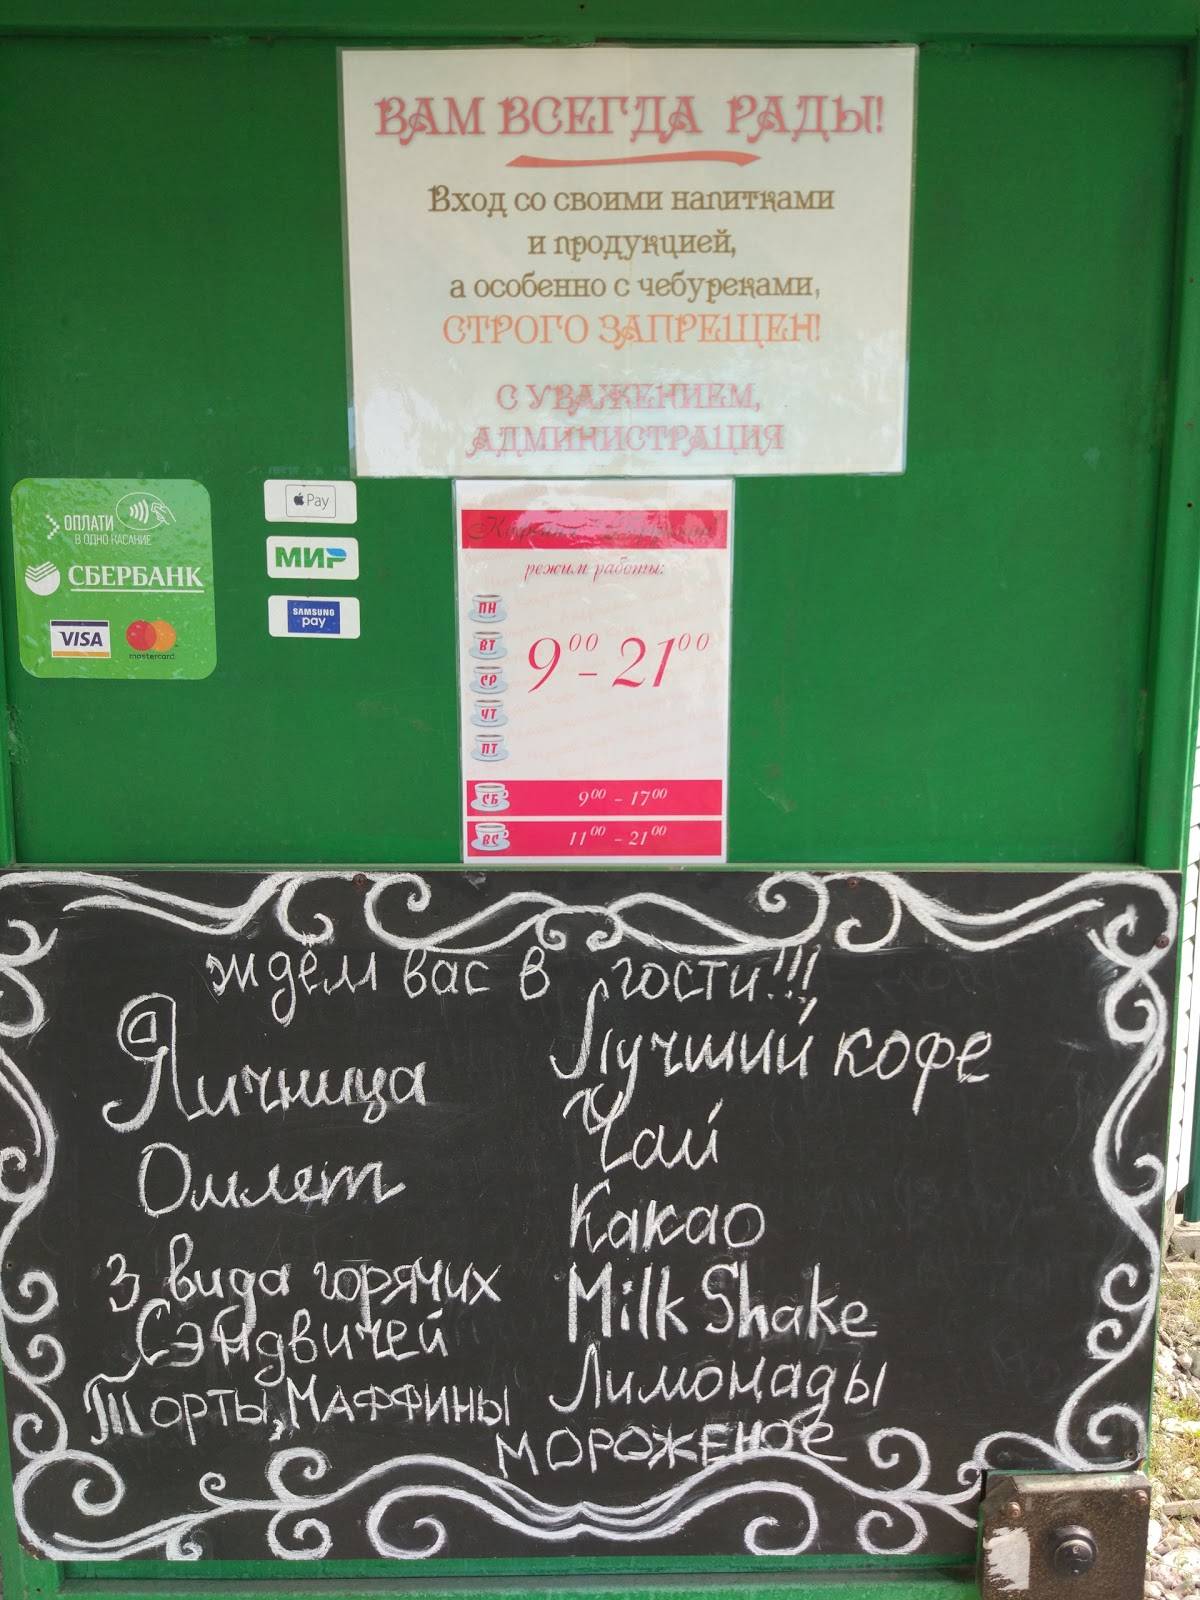 ВАМ ВСЕГДА РАДЫ!
Вход со своими напитками
и продукцией,
а особенно с чебуреками,
СТРОГО ЗАПРЕЩЕН!
С УВАЖЕНИЕМ,
АДМИНИСТРАЦИЯ
ОПЛАТИ
В ОДНО КАСАНИЕ
СБЕРБАНК
VISA
mastercard
Pay
МИР
SAMSUNG
pay
режим работы:
ПН
ВТ
СР
ЧТ
ПТ
9⁰⁰ - 21⁰⁰
СБ 9⁰⁰ - 17⁰⁰
ВС 11⁰⁰ - 21⁰⁰
ждём вас в гости!!!
Яичница
Омлет
3 вида горячих
Сэндвичей
Торты, Маффины
Лучший кофе
Чай
Какао
Milk Shake
Лимонады
МОРОЖЕНОЕ